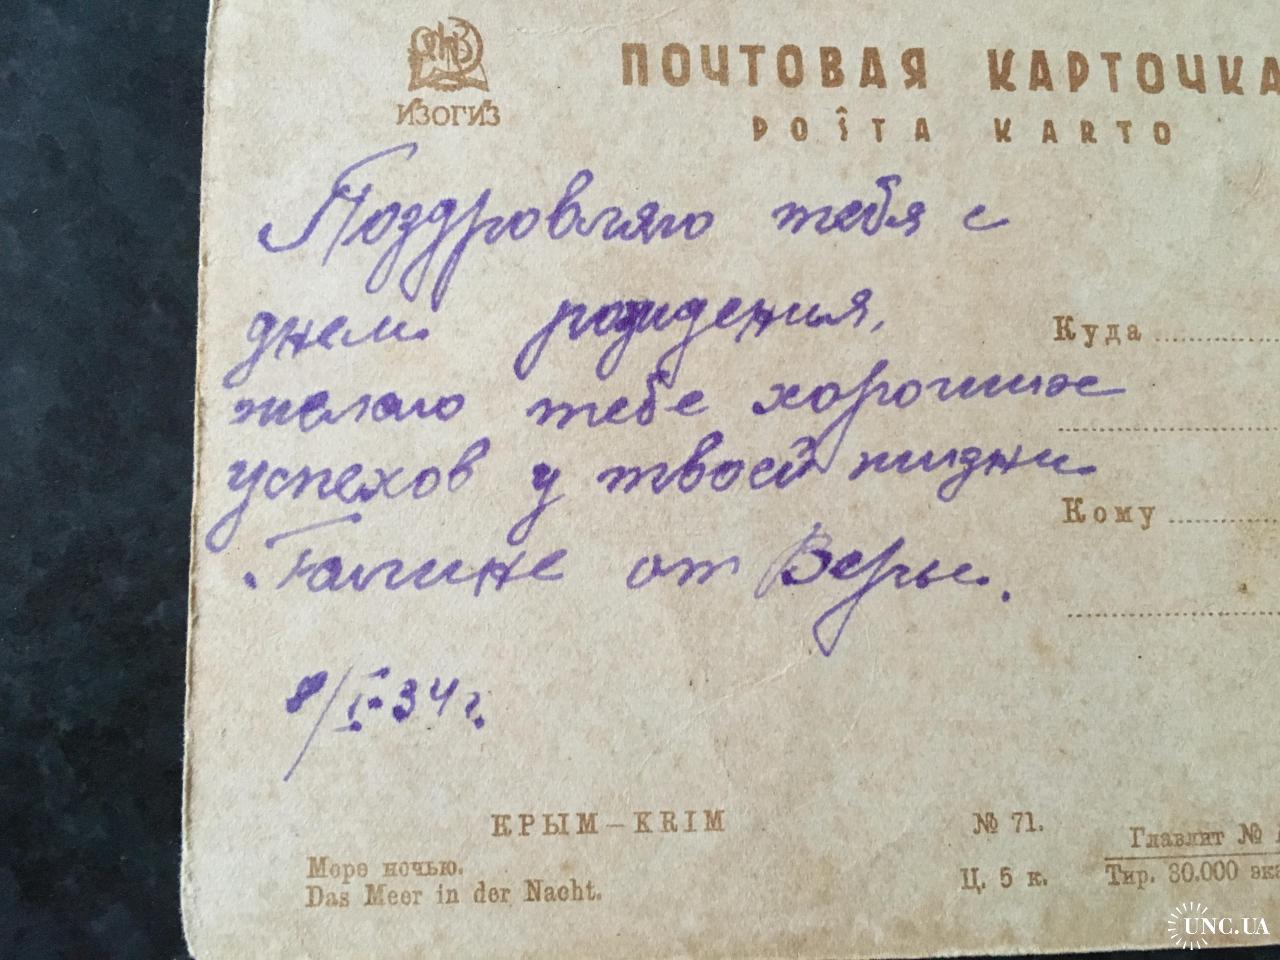 ИЗОГИЗ
ПОЧТОВАЯ КАРТОЧКА
POŜTA KARTO
Поздровляю тебя с
днем рождения,
желаю тебе хороших
успехов у твоей жизни
Галине от Веры.
8/I-34 г.
Куда
Кому
КРЫМ – KRIM
Море ночью.
Das Meer in der Nacht.
№ 71.
Ц. 5 к.
Главлит №
Тир. 30.000 экз
UNC.UA